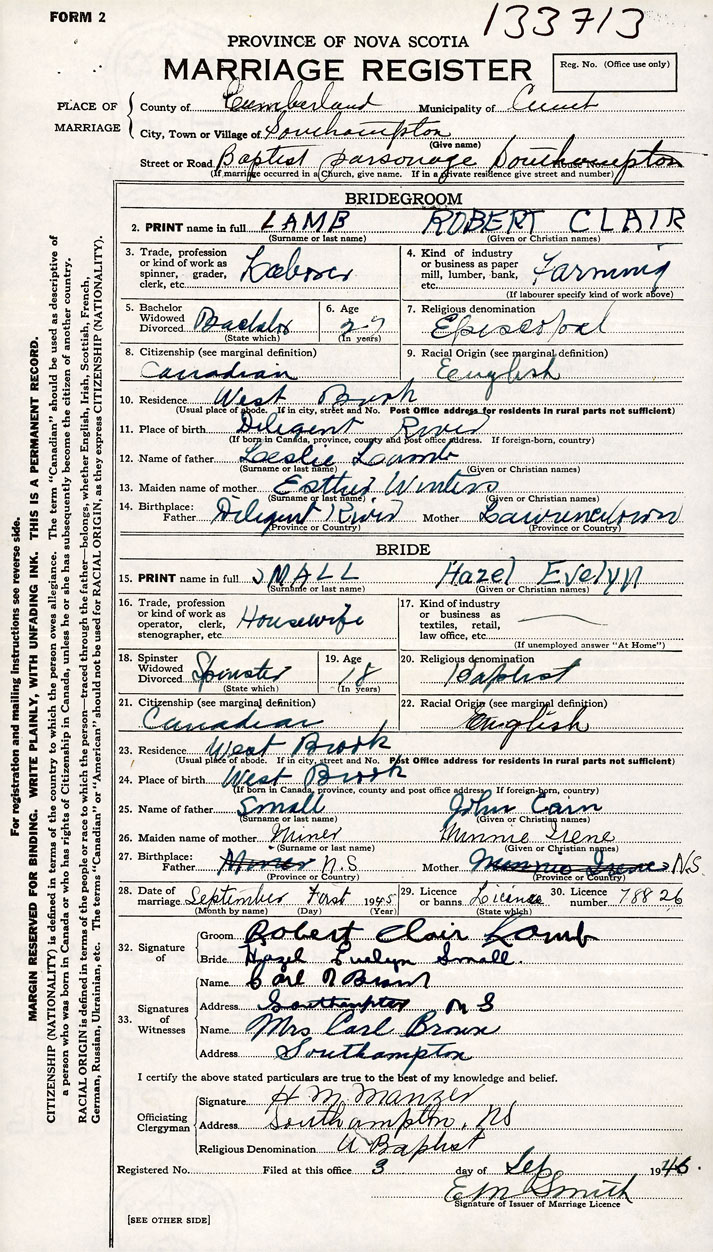 FORM 2
133713
PROVINCE OF NOVA SCOTIA
MARRIAGE REGISTER
Reg. No. (Office use only)
PLACE OF MARRIAGE
County of Cumberland Municipality of
City, Town or Village of Southampton
(Give name)
Street or Road Baptist parsonage Southampton House No.
(If marriage occurred in a Church, give name. If in a private residence give street and number)
BRIDEGROOM
2. PRINT name in full LAMB ROBERT CLAIR
(Surname or last name) (Given or Christian names)
3. Trade, profession or kind of work as spinner, grader, clerk, etc. Laborer
4. Kind of industry or business as paper mill, lumber, bank, etc. Farming
(If labourer specify kind of work above)
5. Bachelor Widowed Divorced Bachelor
(State which)
6. Age 27
(In years)
7. Religious denomination Episcopal
8. Citizenship (see marginal definition) Canadian
9. Racial Origin (see marginal definition) English
10. Residence West Brook
(Usual place of abode. If in city, street and No. Post Office address for residents in rural parts not sufficient)
11. Place of birth Diligent River
(If born in Canada, province, county and post office address. If foreign-born, country)
12. Name of father Leslie Lamb
(Surname or last name) (Given or Christian names)
13. Maiden name of mother Esther Winters
(Surname or last name) (Given or Christian names)
14. Birthplace: Father Diligent River Mother Lawrencetown
(Province or Country) (Province or Country)
BRIDE
15. PRINT name in full SMALL Hazel Evelyn
(Surname or last name) (Given or Christian names)
16. Trade, profession or kind of work as operator, clerk, stenographer, etc. Housewife
17. Kind of industry or business as textiles, retail, law office, etc.
(If unemployed answer "At Home")
18. Spinster Widowed Divorced Spinster
(State which)
19. Age 18
(In years)
20. Religious denomination Baptist
21. Citizenship (see marginal definition) Canadian
22. Racial Origin (see marginal definition) English
23. Residence West Brook
(Usual place of abode. If in city, street and No. Post Office address for residents in rural parts not sufficient)
24. Place of birth West Brook
(If born in Canada, province, county and post office address. If foreign-born, country)
25. Name of father Small John Cain
(Surname or last name) (Given or Christian names)
26. Maiden name of mother Miner Minnie Irene
(Surname or last name) (Given or Christian names)
27. Birthplace: Father Miner N.S Mother Minnie Irene N.S.
(Province or Country) (Province or Country)
28. Date of marriage September First 1945
(Month by name) (Day) (Year)
29. Licence or banns License
(State which)
30. Licence number 78826
32. Signature of
Groom Robert Clair Lamb
Bride Hazel Evelyn Small.
33. Signatures of Witnesses
Name Carl Brown
Address Southampton N S
Name Mrs Carl Brown
Address Southampton
I certify the above stated particulars are true to the best of my knowledge and belief.
Officiating Clergyman
Signature H M Manzer
Address Southampton, NS
Religious Denomination U Baptist
Registered No. Filed at this office 3 day of Sep 1946.
E M Smith
Signature of Issuer of Marriage Licence
[SEE OTHER SIDE]
For registration and mailing instructions see reverse side.
MARGIN RESERVED FOR BINDING. WRITE PLAINLY, WITH UNFADING INK. THIS IS A PERMANENT RECORD.
CITIZENSHIP (NATIONALITY) is defined in terms of the country to which the person owes allegiance. The term "Canadian" should be used as descriptive of
a person who was born in Canada or who has rights of Citizenship in Canada, unless he or she has subsequently become the citizen of another country.
RACIAL ORIGIN is defined in terms of the people or race to which the person—traced through the father—belongs, whether English, Irish, Scottish, French,
German, Russian, Ukrainian, etc. The terms "Canadian" or "American" should not be used for RACIAL ORIGIN, as they express CITIZENSHIP (NATIONALITY).